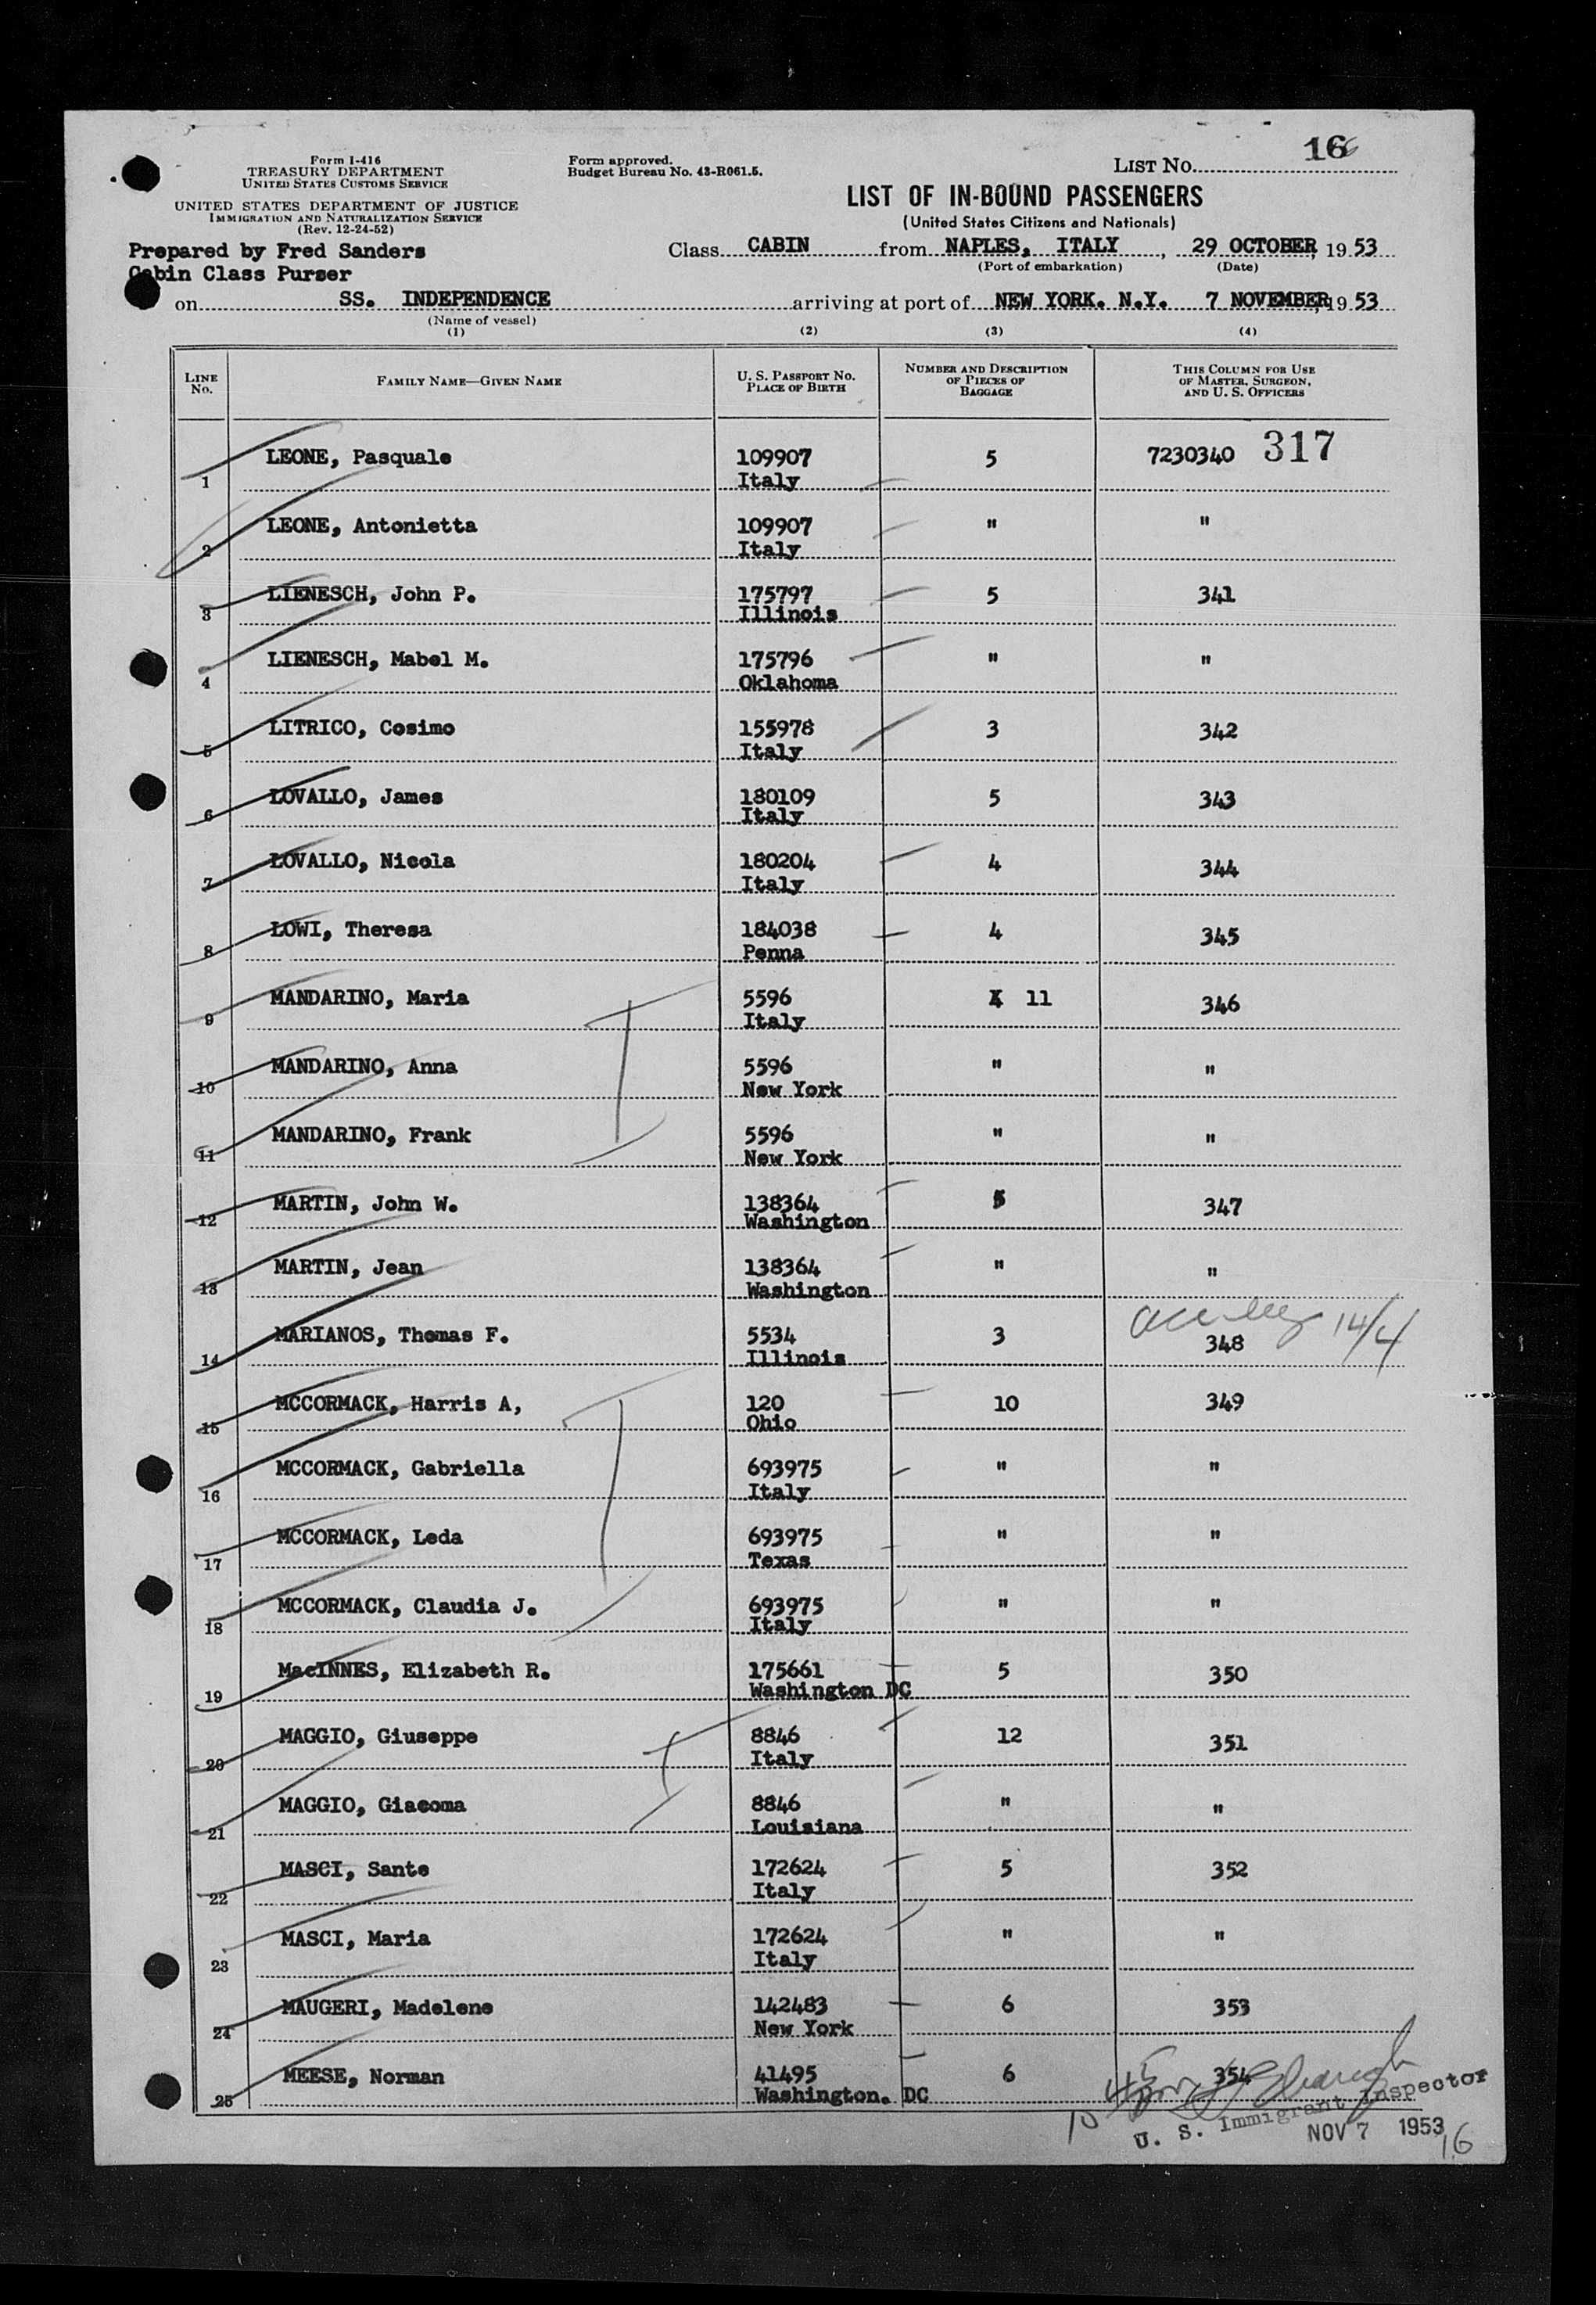 Form I-416
TREASURY DEPARTMENT
UNITED STATES CUSTOMS SERVICE
UNITED STATES DEPARTMENT OF JUSTICE
IMMIGRATION AND NATURALIZATION SERVICE
(Rev. 12-24-52)
Form approved.
Budget Bureau No. 43-R061.5.
LIST NO. 16
LIST OF IN-BOUND PASSENGERS
(United States Citizens and Nationals)
Prepared by Fred Sanders
Cabin Class Purser
Class CABIN from NAPLES, ITALY, 29 OCTOBER, 1953
(Port of embarkation) (Date)
on SS. INDEPENDENCE arriving at port of NEW YORK. N.Y. 7 NOVEMBER, 1953
(Name of vessel)
(1) (2) (3) (4)
LINE NO. FAMILY NAME—GIVEN NAME U. S. PASSPORT NO. PLACE OF BIRTH NUMBER AND DESCRIPTION OF PIECES OF BAGGAGE THIS COLUMN FOR USE OF MASTER, SURGEON, AND U. S. OFFICERS
1 LEONE, Pasquale 109907 5 7230340 317
Italy
2 LEONE, Antonietta 109907 " "
Italy
3 LIENESCH, John P. 175797 5 341
Illinois
4 LIENESCH, Mabel M. 175796 " "
Oklahoma
5 LITRICO, Cosimo 155978 3 342
Italy
6 LOVALLO, James 180109 5 343
Italy
7 LOVALLO, Nicola 180204 4 344
Italy
8 LOWI, Theresa 184038 4 345
Penna
9 MANDARINO, Maria 5596 11 346
Italy
10 MANDARINO, Anna 5596 " "
New York
11 MANDARINO, Frank 5596 " "
New York
12 MARTIN, John W. 138364 347
Washington
13 MARTIN, Jean 138364 " "
Washington
14 MARIANOS, Thomas F. 5534 3 348 14/4
Illinois
15 MCCORMACK, Harris A, 120 10 349
Ohio
16 MCCORMACK, Gabriella 693975 " "
Italy
17 MCCORMACK, Leda 693975 " "
Texas
18 MCCORMACK, Claudia J. 693975 " "
Italy
19 MacINNES, Elizabeth R. 175661 5 350
Washington DC
20 MAGGIO, Giuseppe 8846 12 351
Italy
21 MAGGIO, Giacoma 8846 " "
Louisiana
22 MASCI, Sante 172624 5 352
Italy
23 MASCI, Maria 172624 " "
Italy
24 MAUGERI, Madelene 142483 6 353
New York
25 MEESE, Norman 41495 6 354
Washington. DC
U. S. Immigrant Inspector
NOV 7 1953
16